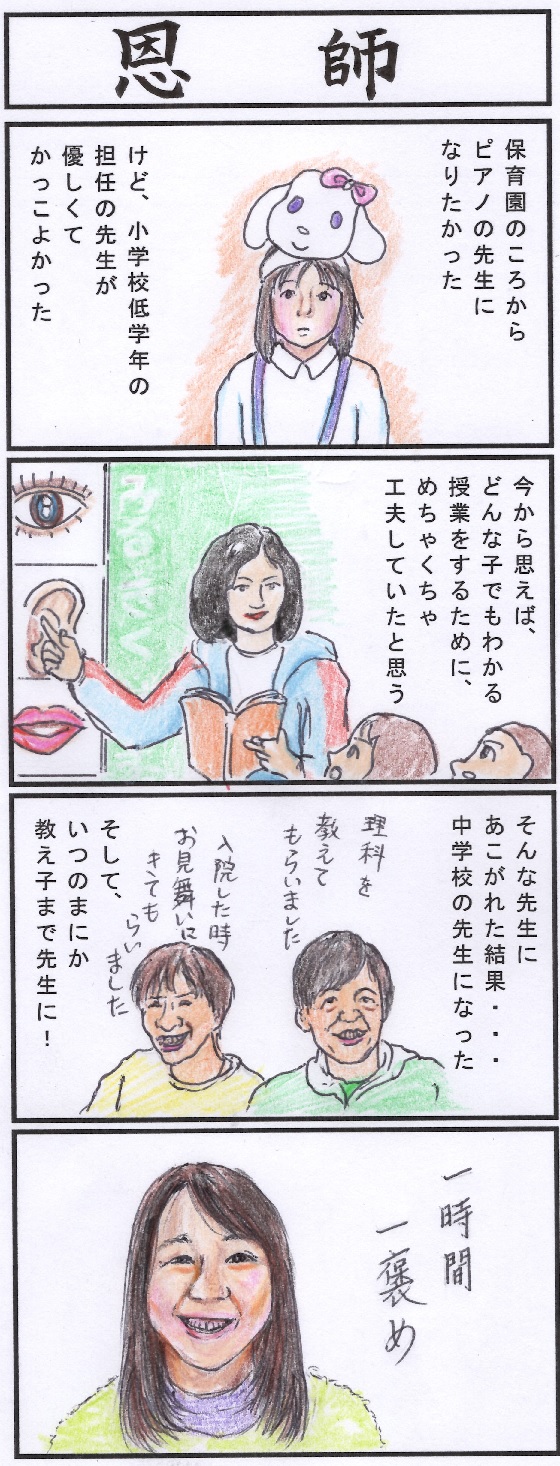 恩師
保育園のころから
ピアノの先生に
なりたかった
けど、小学校低学年の
担任の先生が
優しくて
かっこよかった
今から思えば、
どんな子でもわかる
授業をするために、
めちゃくちゃ
工夫していたと思う
そんな先生に
あこがれた結果・・・
中学校の先生になった
理科を
教えて
もらいました
入院した時
お見舞いに
きても
らい
ました
そして、
いつのまにか
教え子まで先生に！
一時間
一褒め